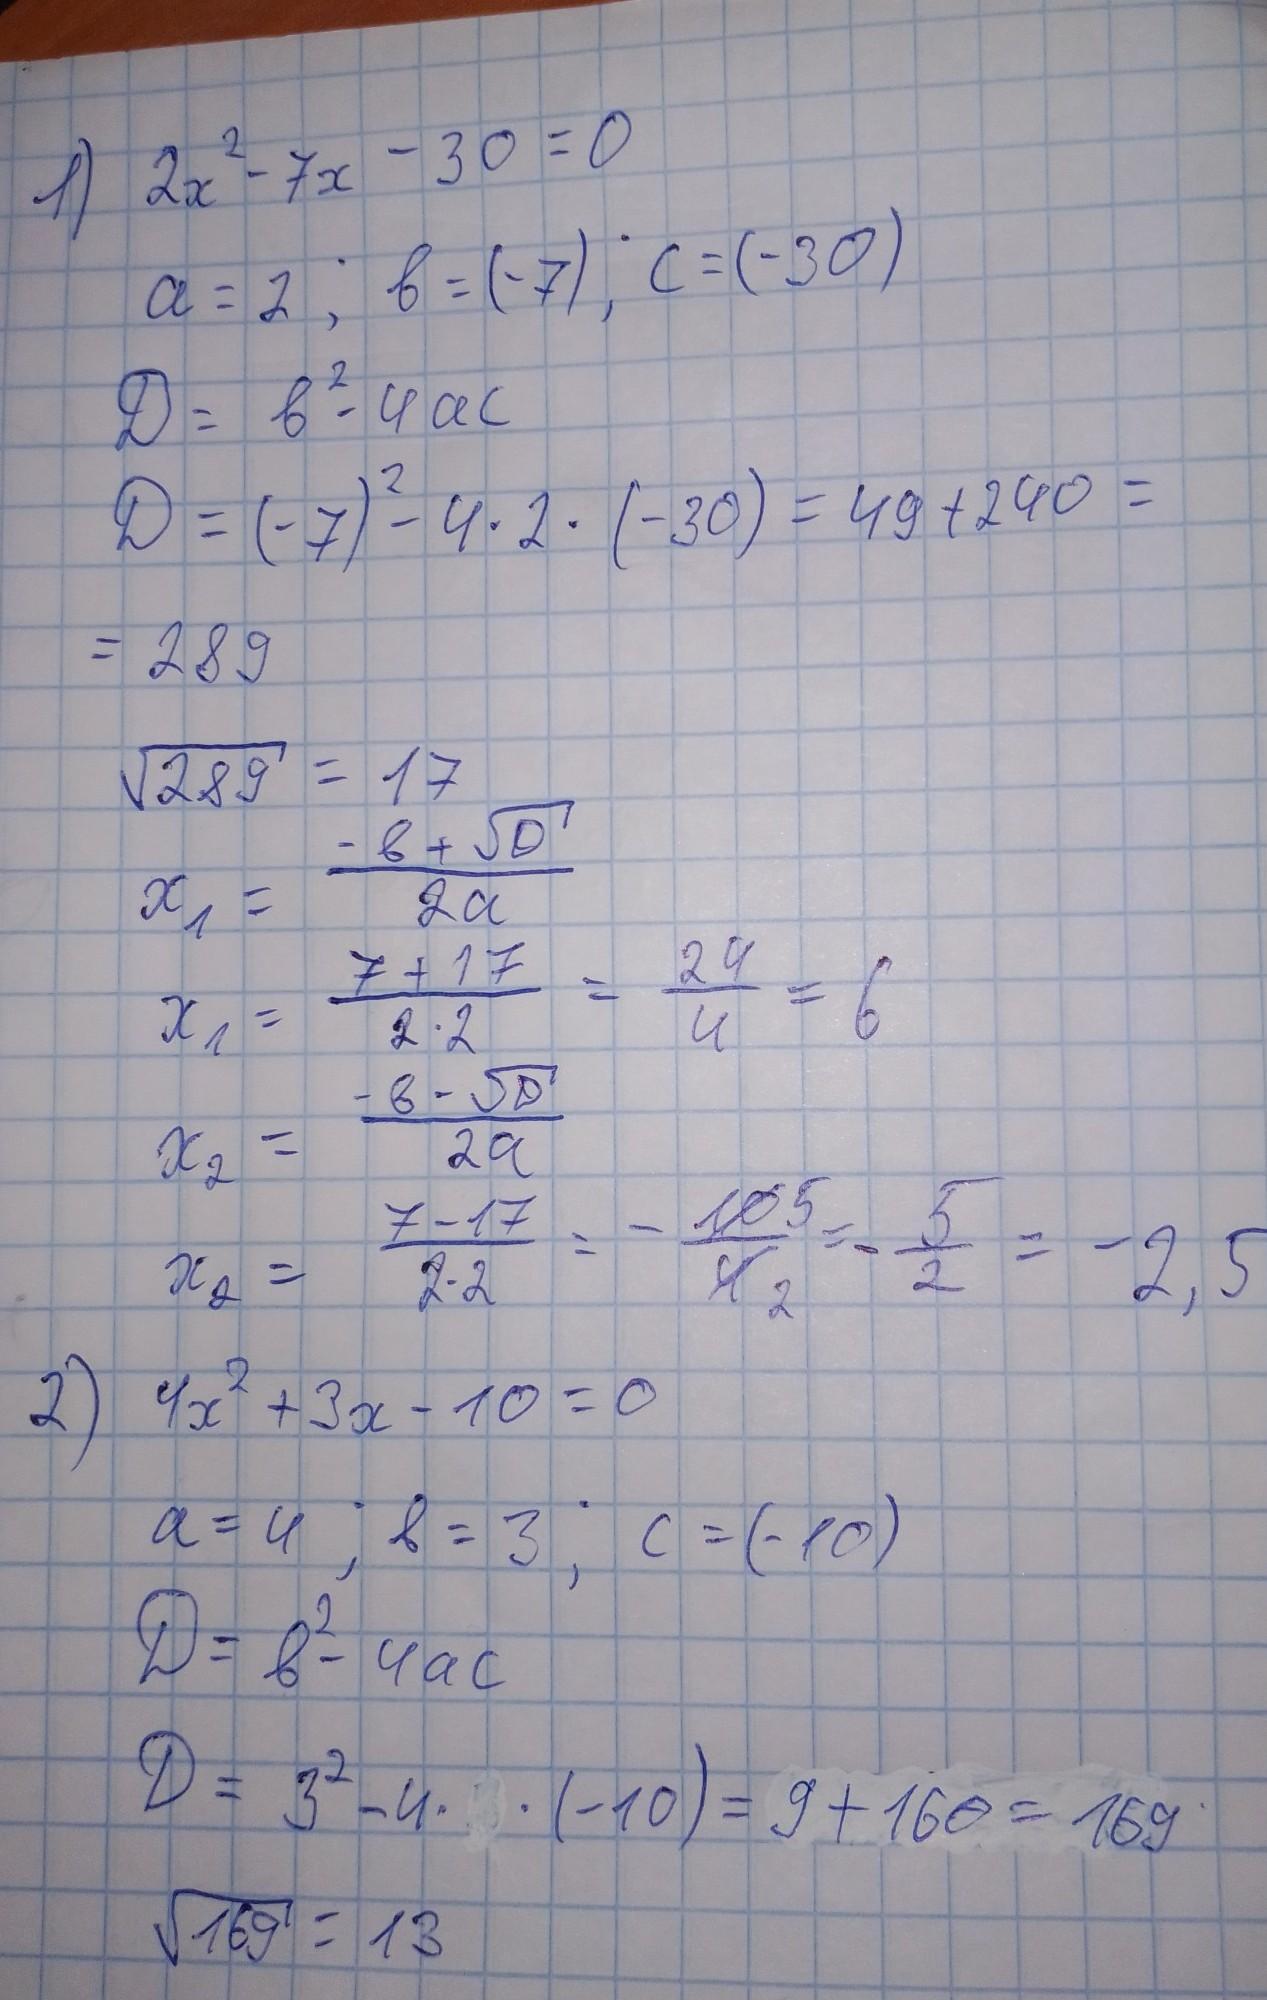 1) 2x² - 7x - 30 = 0
a = 2; b = (-7); c = (-30)
D = b² - 4ac
D = (-7)² - 4 · 2 · (-30) = 49 + 240 =
= 289
√289 = 17
x₁ = (-b + √D)/(2a)
x₁ = (7 + 17)/(2·2) = 24/4 = 6
x₂ = (-b - √D)/(2a)
x₂ = (7 - 17)/(2·2) = - 10 5/4 2 = - 5/2 = -2,5
2) 4x² + 3x - 10 = 0
a = 4; b = 3; c = (-10)
D = b² - 4ac
D = 3² - 4 · · (-10) = 9 + 160 = 169
√169 = 13